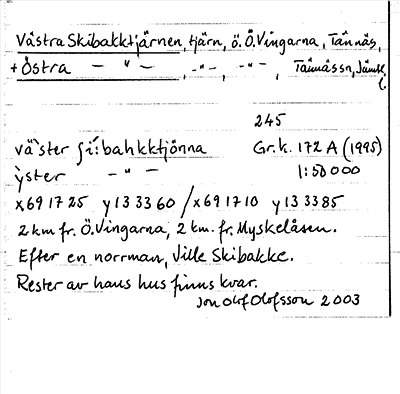 Västra Skibakktjärnen, tjärn, ö. Ö. Vingarna, Tännäs,
+ Östra — " — , — " — , — " — , Tännäs sn, Jämtl. l.
245
vä`ster ʃi´bahkktjönna Gr.k. 172 A (1995)
`yster — " — 1:50 000
x 69 17 25 y 13 33 60 / x 69 17 10 y 13 33 85
2 km fr. Ö. Vingarna, 2 km. fr. Myskelåsen.
Efter en norrman, Ville Skibakke.
Rester av hans hus finns kvar.
Jon Olof Olofsson 2003